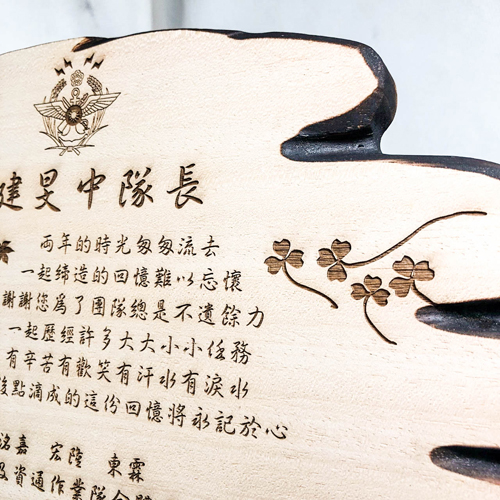 建旻中隊長
兩年的時光匆匆流去
一起締造的回憶難以忘懷
謝謝您為了團隊總是不遺餘力
一起歷經許多大大小小任務
有辛苦有歡笑有汗水有淚水
點滴成的這份回憶將永記於心
嘉 宏陞 東霖
資通作業隊全體